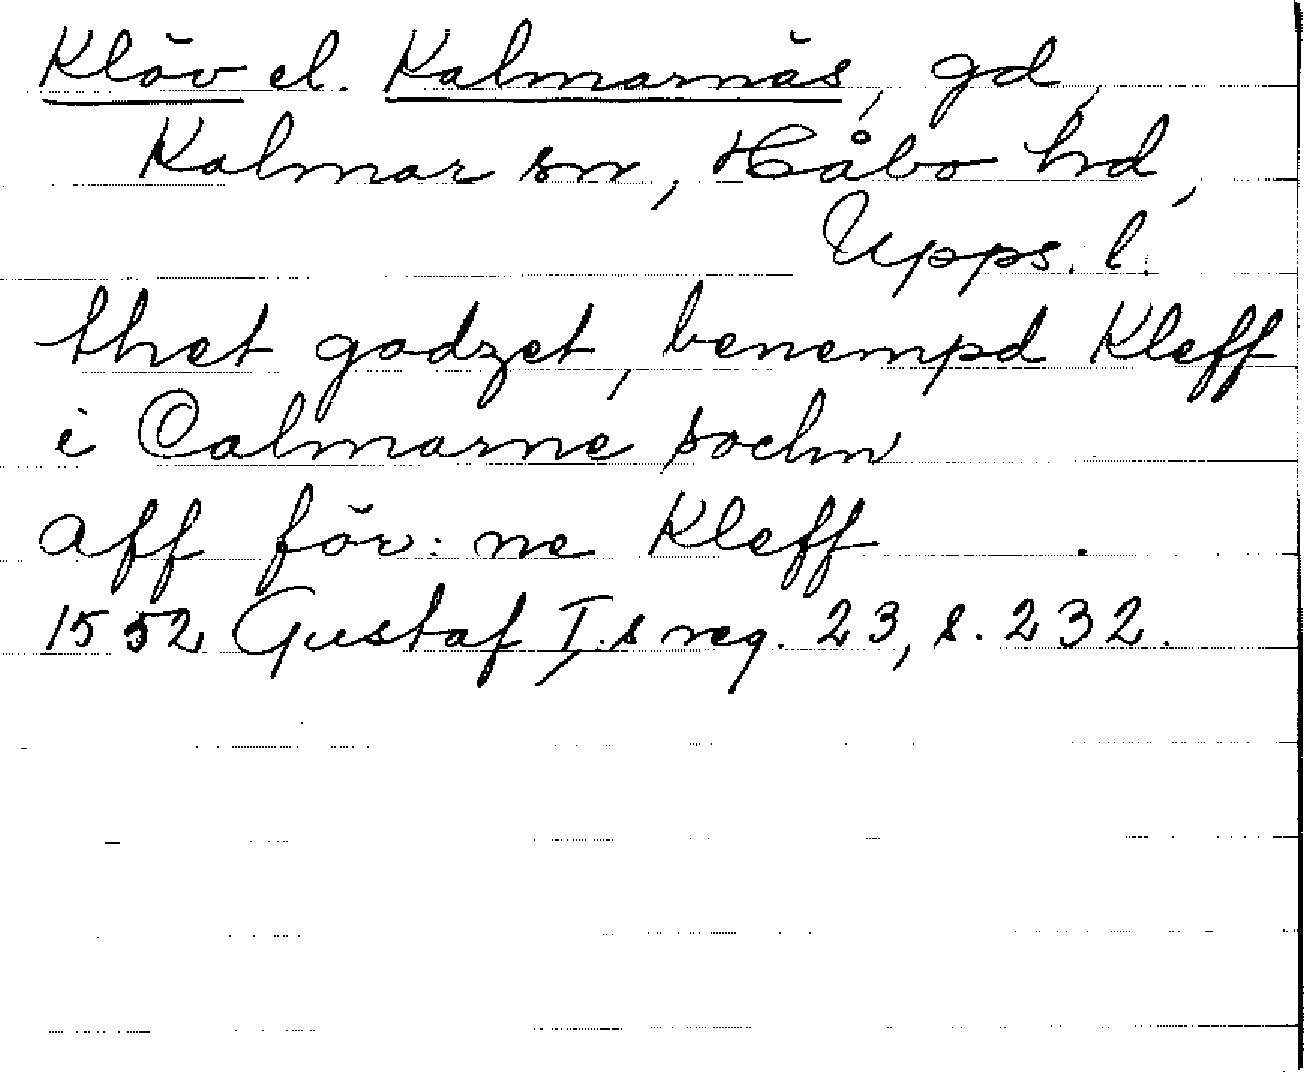 Klöv el. Kalmarnäs, gd,
Kalmar sn, Håbo hrd,
Upps. l.
thet godzet, benempd Kleff
i Calmarne sochn
aff för:ne Kleff .
1552 Gustaf I:s reg. 23, s. 232.